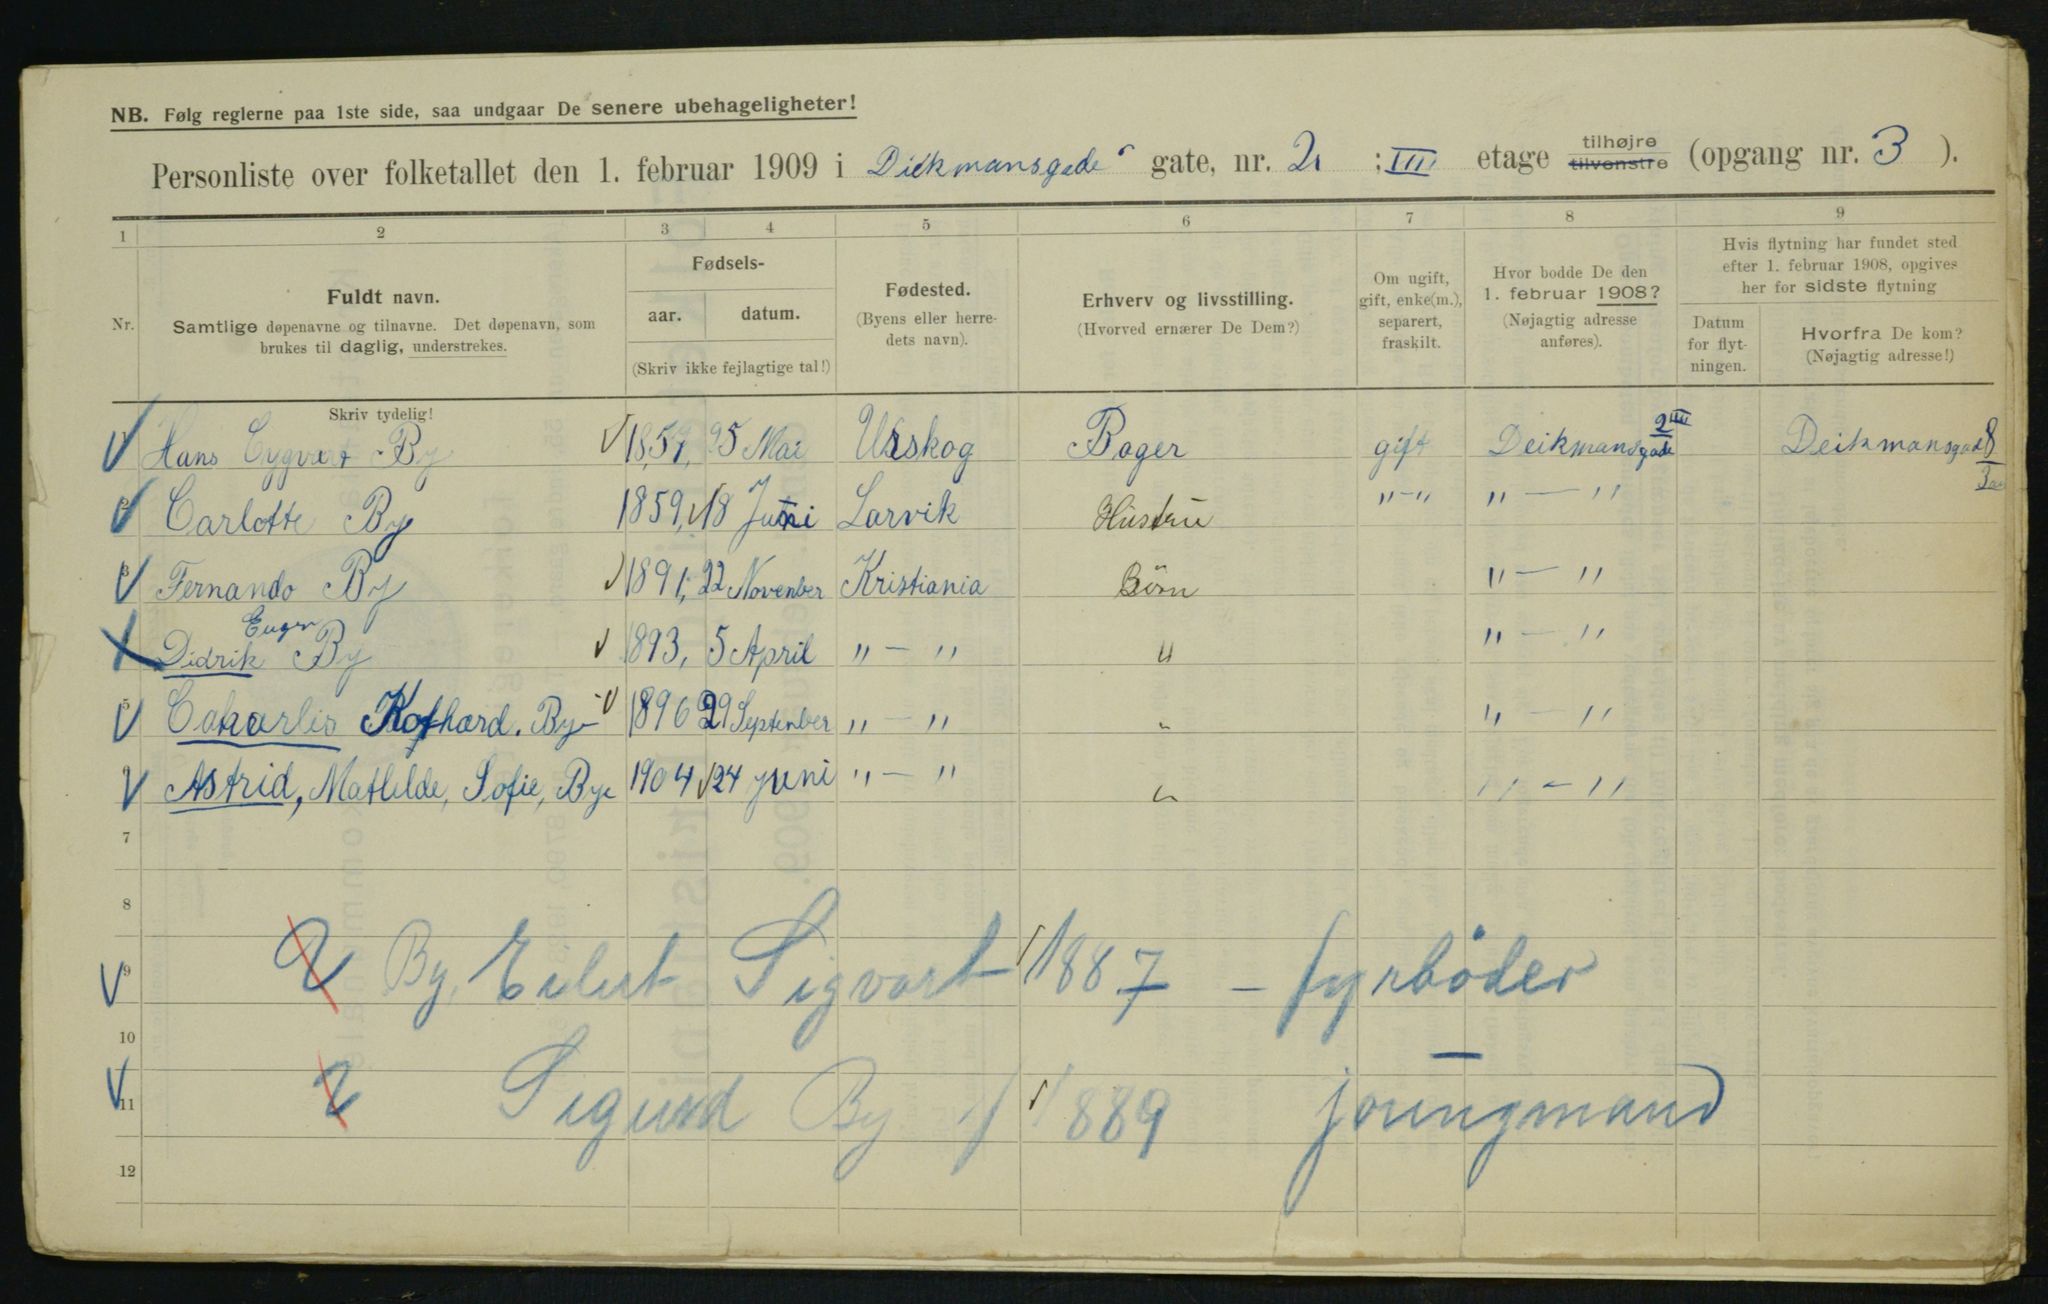 NB. Følg reglerne paa 1ste side, saa undgaar De senere ubehageligheter!
Personliste over folketallet den 1. februar 1909 i Diekmansgade gate, nr. 2 ; III etage tilhøjre tilvenstre (opgang nr. 3 ).
1 2 3 4 5 6 7 8 9
Nr.
Fuldt navn.
Samtlige døpenavne og tilnavne. Det døpenavn, som
brukes til daglig, understrekes.
Skriv tydelig!
Fødsels-
aar. datum.
(Skriv ikke fejlagtige tal!)
Fødested.
(Byens eller herre-
dets navn).
Erhverv og livsstilling.
(Hvorved ernærer De Dem?)
Om ugift,
gift, enke(m.),
separert,
fraskilt.
Hvor bodde De den
1. februar 1908?
(Nøjagtig adresse
anføres).
Hvis flytning har fundet sted
efter 1. februar 1908, opgives
her for sidste flytning
Datum
for flyt-
ningen.
Hvorfra De kom?
(Nøjagtig adresse!)
Hans By 5 Mai Urskog Bager gift Deikmansgade 2 III Deikmansgade 8
Carlotte By 1859, 18 Juni Larvik Hustru " — " " — "
3 Fernando By 1891, 22 November Kristiania Börn " — "
Eugen
Didrik By 1893, 5 April " — " " " — "
5 By 1896 29 September " — " " " — "
Astrid, Mathilde, Sofie, Bye 1904 24 juni " — " " " — "
7
8
9 By, Eilert Sigvart 1887 – fyrbøder
10
11 Sigurd By 1889 joungmand
12